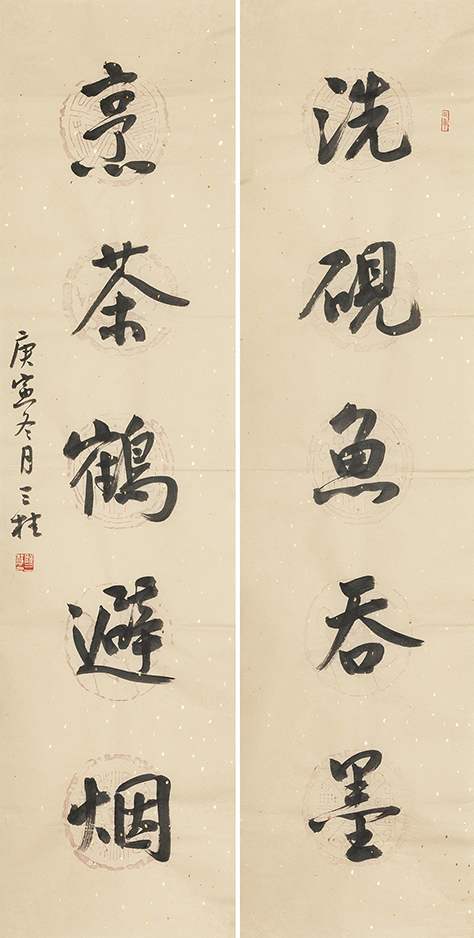 洗砚鱼吞墨
烹茶鹤避烟
庚寅冬月三桂